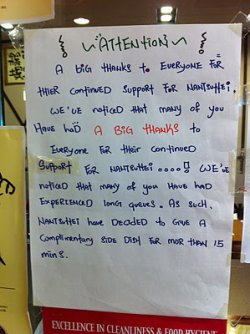 ATTENTION
A BIG THANKS to EVERYONE FOR
THIER CONTINUED SUPPORT FOR NANTSUTTEI.
WE'VE NOTICED THAT MANY of you
HAVE HAD A BIG THANKS to
EVERYONE FOR THEIR CONTINUED
SUPPORT FOR NANTSUTTEI ..... WE'VE
NOTICED THAT MANY OF YOU HAVE HAD
EXPERIENCED LONG QUEUES. AS SUCH,
NANTSUTTEI HAVE DECIDED TO GIVE A
COMPLIMENTARY SIDE DISH FOR MOR THAN 15
MINS.
EXCELLENCE IN CLEANLINESS & FOOD HYGIENE